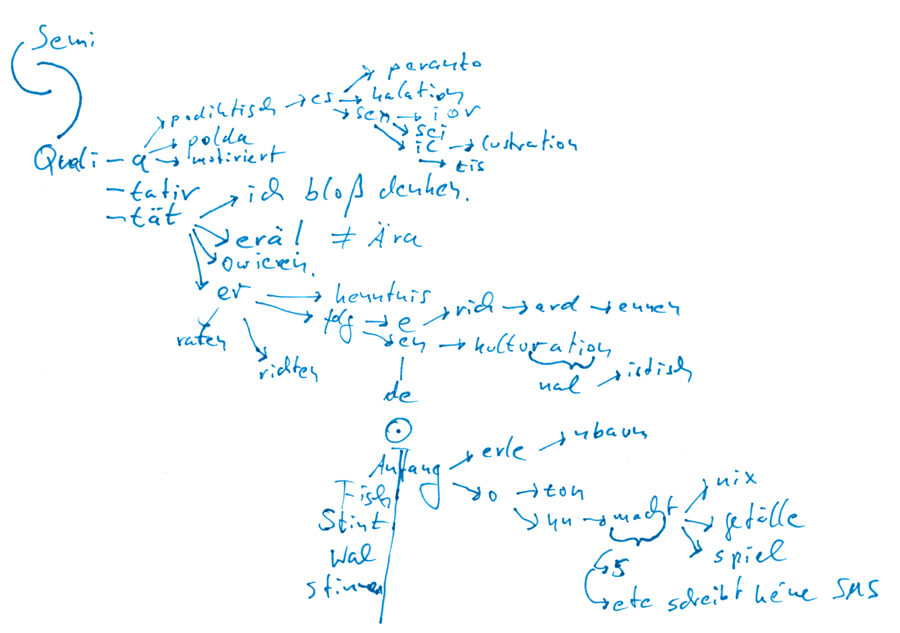 Semi
peranto
podiktisch → es → kalation
→ sen → ior
polda
→ sci
Quali - a → motiviert
ic → lustration
→ tis
- tativ
→ ich bloß denken.
- tät
erä! ≠ Ära
owieren.
er → kenntnis
folg → e → rich → ard → ennen
raten
→ en → kulturation
richten
nal → istisch
de
erle → nbaum
Anfang
Fisch
o → ton
nix
Stint
→ hn → macht → gefälle
Wal
spiel
stimmen
→ 5
→ ete schreibt keine SMS